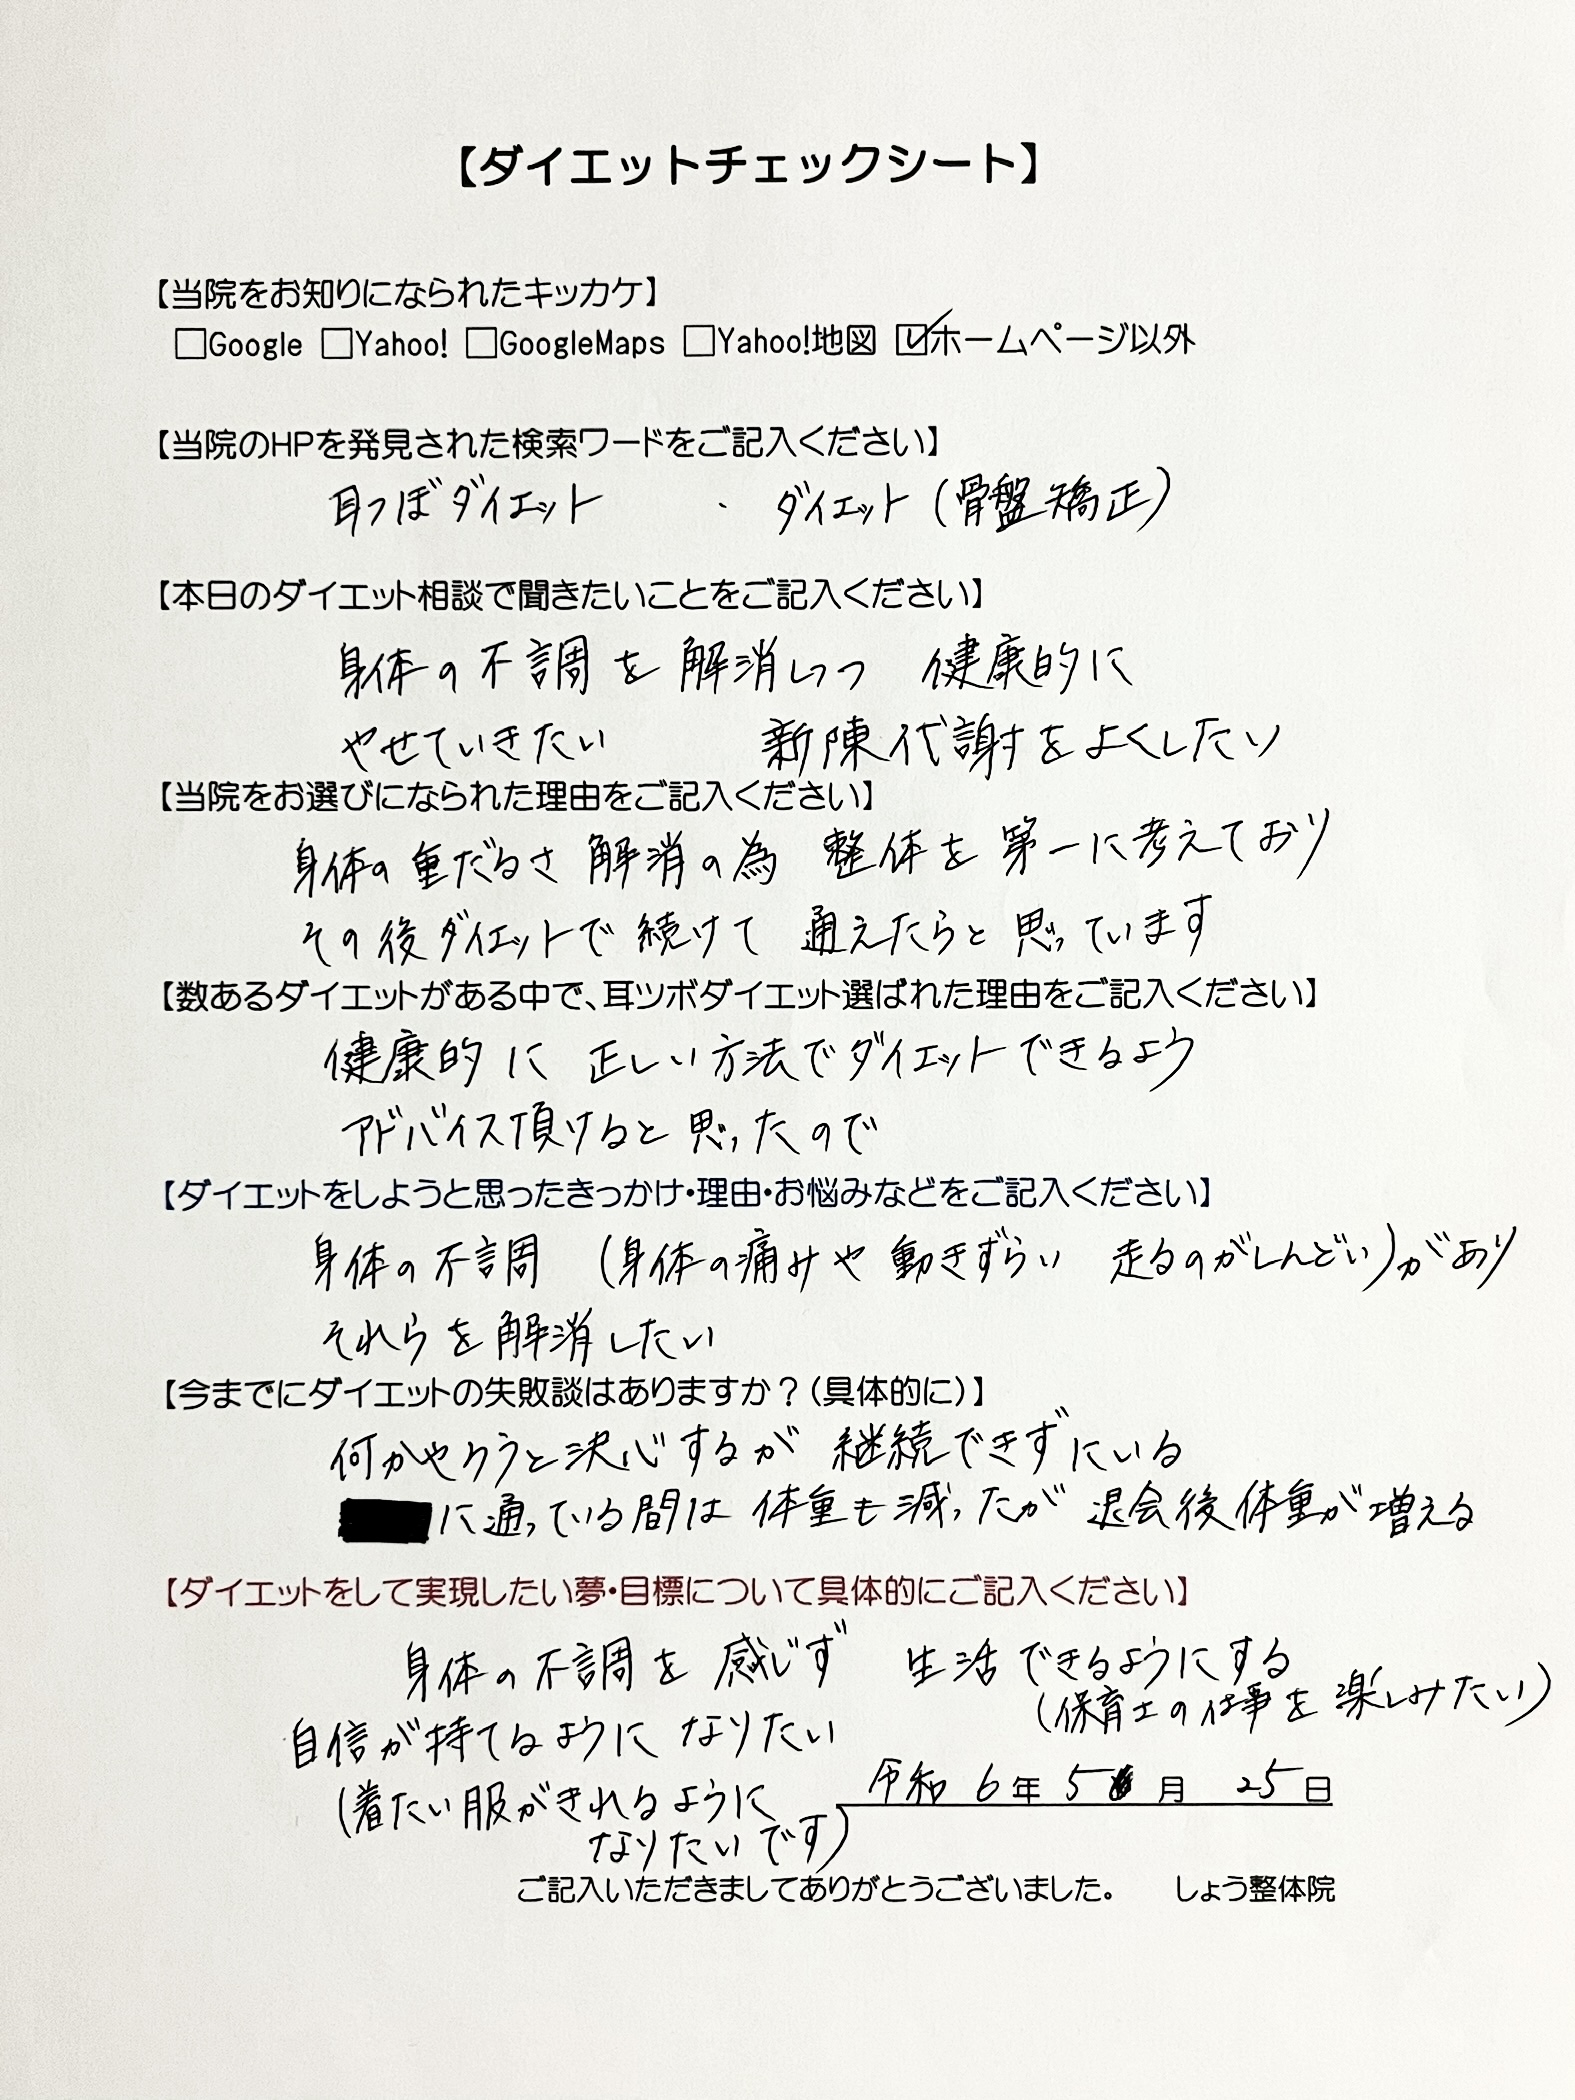 【ダイエットチェックシート】
【当院をお知りになられたキッカケ】
□Google □Yahoo! □GoogleMaps □Yahoo!地図 ☑ホームページ以外
【当院のHPを発見された検索ワードをご記入ください】
耳つぼダイエット ・ ダイエット(骨盤矯正)
【本日のダイエット相談で聞きたいことをご記入ください】
身体の不調を解消しつつ 健康的に
やせていきたい 新陳代謝をよくしたい
【当院をお選びになられた理由をご記入ください】
身体の重だるさ解消の為 整体を第一に考えており
その後ダイエットで続けて 通えたらと思っています
【数あるダイエットがある中で、耳ツボダイエット選ばれた理由をご記入ください】
健康的に 正しい方法でダイエットできるよう
アドバイス頂けると思ったので
【ダイエットをしようと思ったきっかけ・理由・お悩みなどをご記入ください】
身体の不調 (身体の痛みや動きずらい 走るのがしんどい)があり
それらを解消したい
【今までにダイエットの失敗談はありますか?(具体的に)】
何かやろうと決心するが 継続できずにいる
に通っている間は 体重も減ったが 退会後体重が増える
【ダイエットをして実現したい夢・目標について具体的にご記入ください】
身体の不調を感じず 生活できるようにする
(保育士の仕事を楽しみたい)
自信が持てるようになりたい
(着たい服がきれるように
なりたいです)
令和6年5月25日
ご記入いただきましてありがとうございました。 しょう整体院